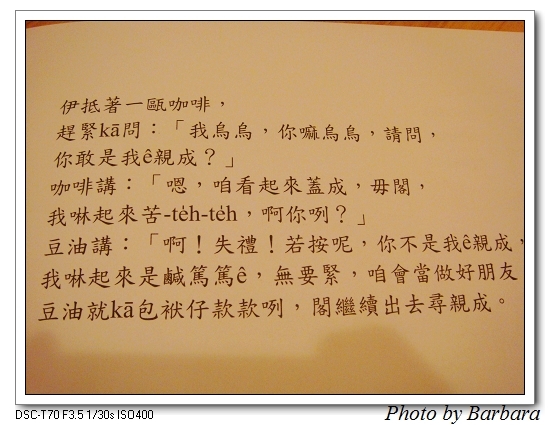 伊抵著一甌咖啡，
趕緊kā問：「我烏烏，你嘛烏烏，請問，
你敢是我ê親成？」
咖啡講：「嗯，咱看起來蓋成，毋閣，
我啉起來苦-te̍h-te̍h，啊你咧？」
豆油講：「啊！失禮！若按呢，你不是我ê親成，
我啉起來是鹹篤篤ê，無要緊，咱會當做好朋友
豆油就kā包袱仔款款咧，閣繼續出去尋親成。
DSC-T70 F3.5 1/30s ISO400
Photo by Barbara